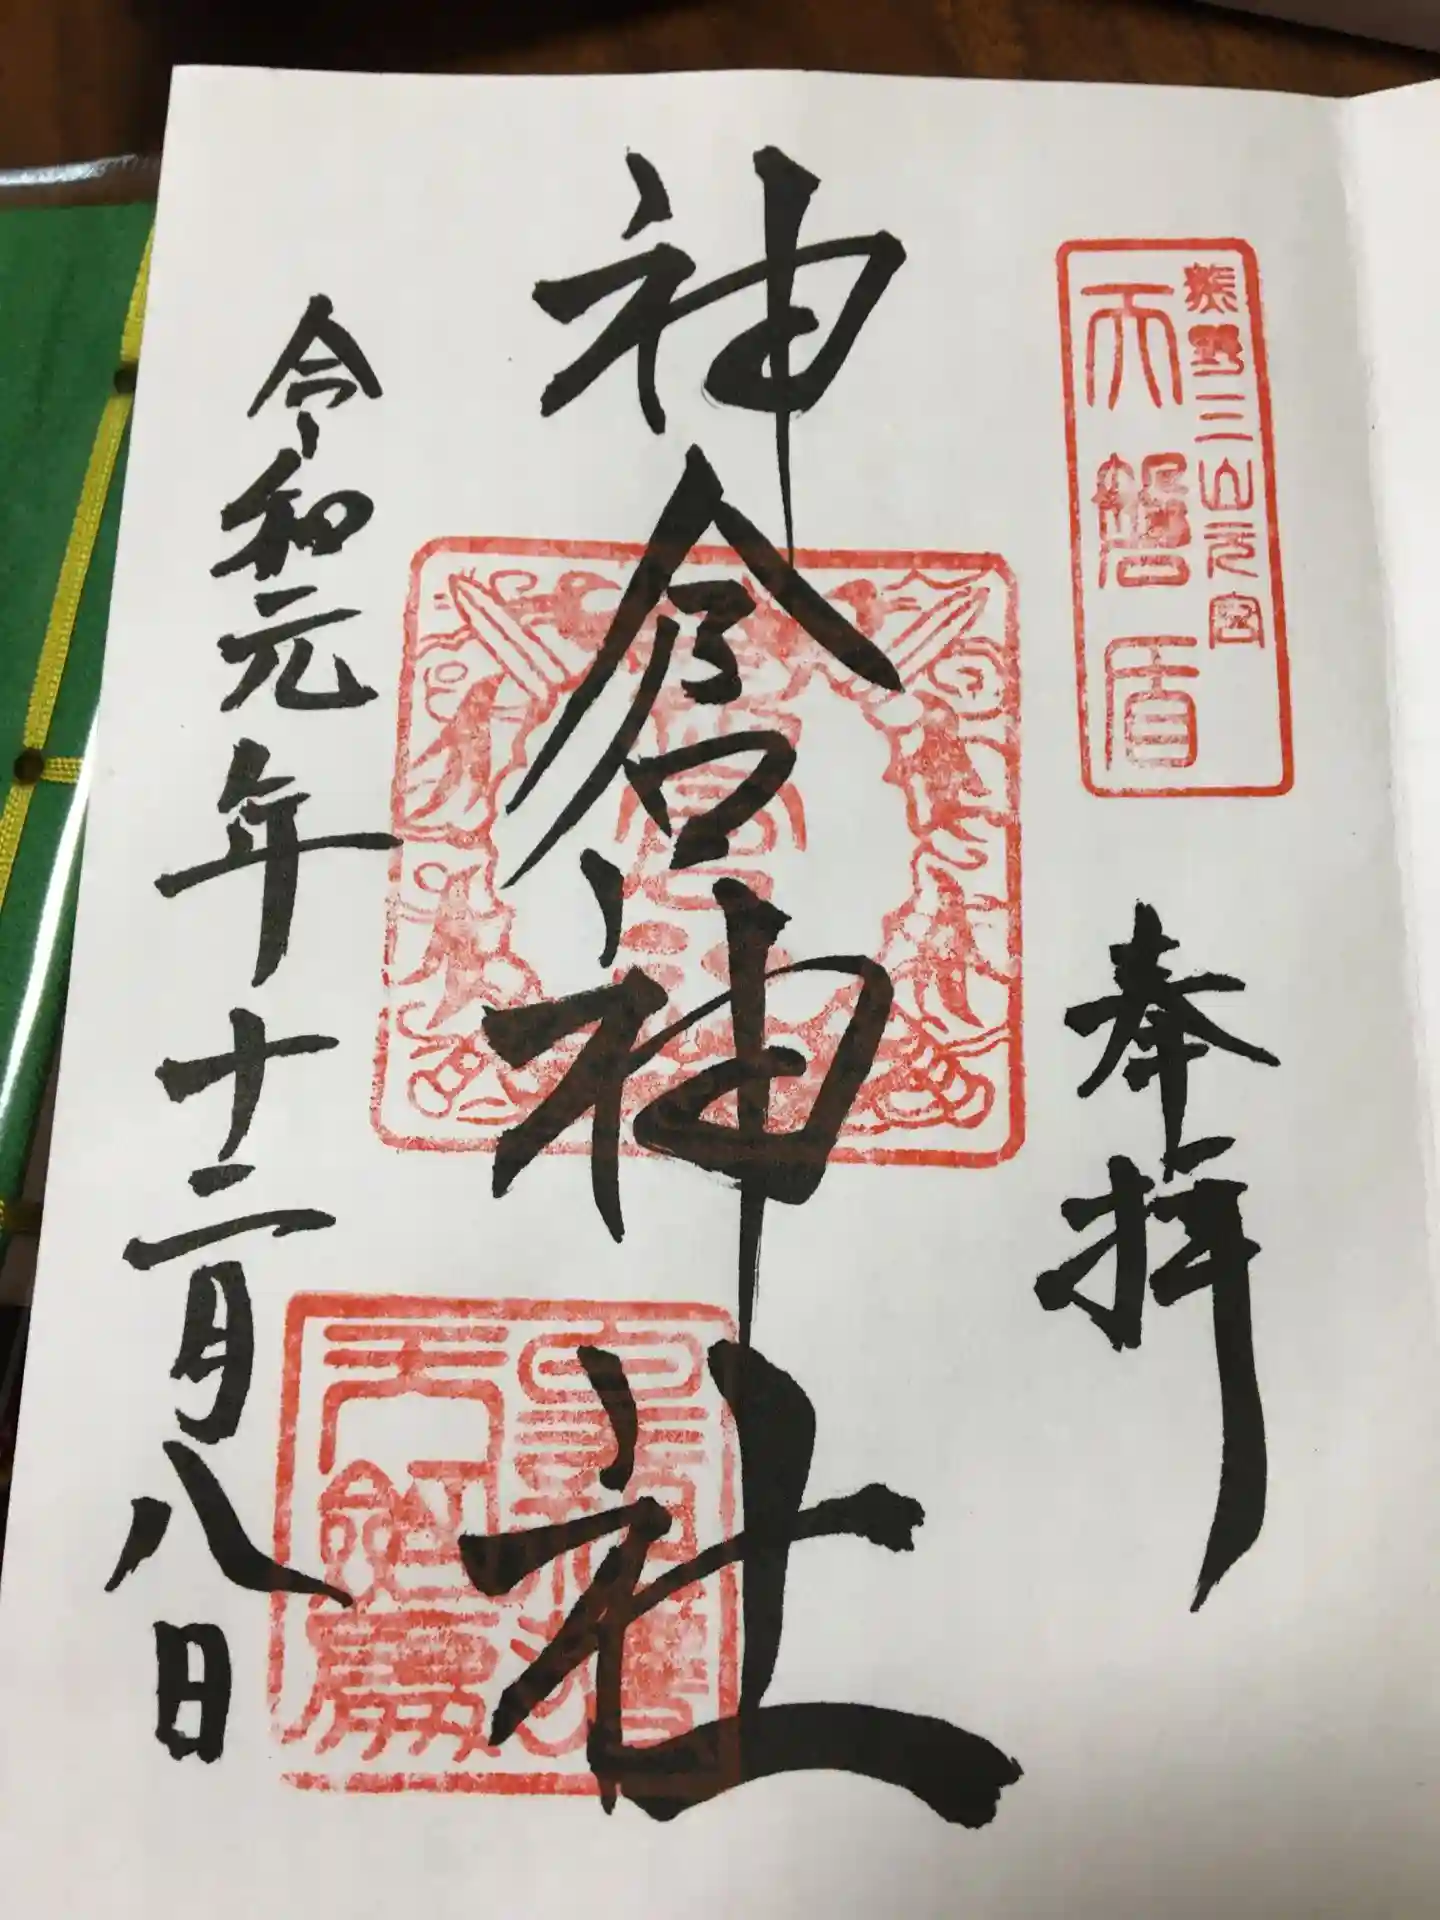 熊野三山元宮
天磐盾
奉拝
神倉神社
令和元年十二月八日